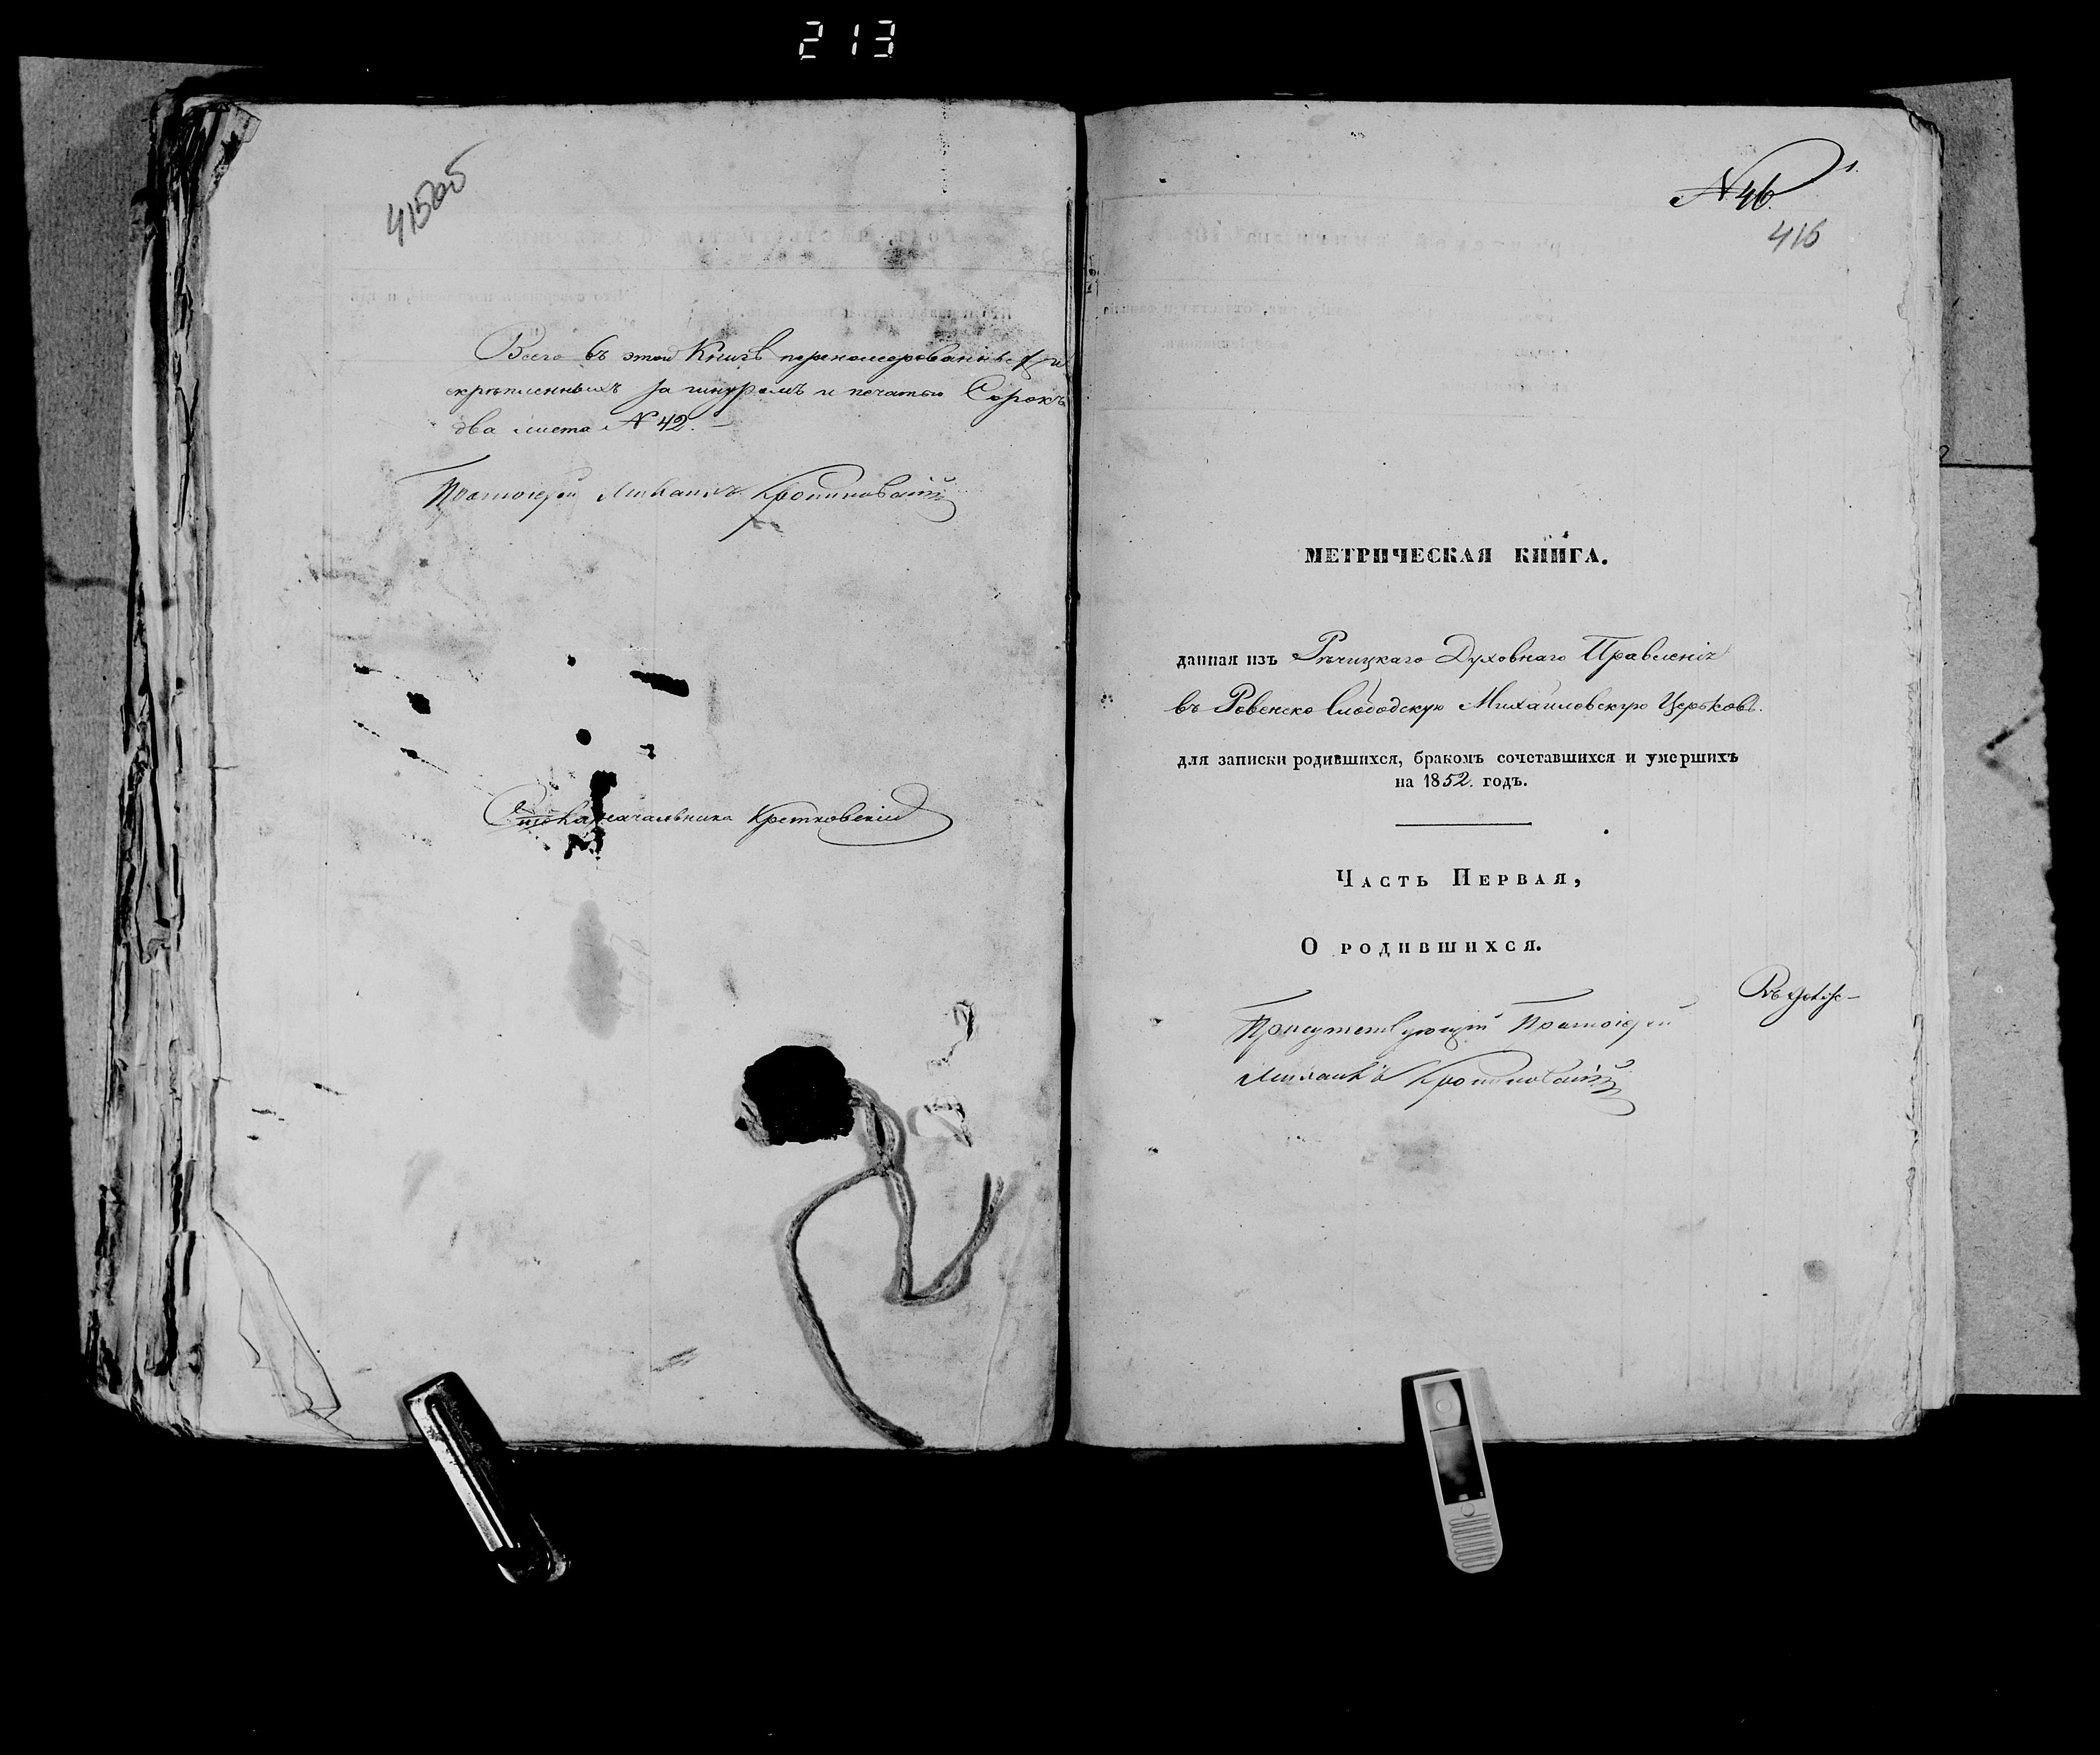 213
415об
Всего въ этой Книгѣ перенумерованныхъ и
скрѣпленныхъ за шнуромъ и печатью Сорокъ
два листа N 42.
Протоіерей Михаилъ
Столоначальника
N 46.
416
МЕТРИЧЕСКАЯ КНИГА.
данная изъ Рѣчицкаго Духовнаго Правленія
въ Ровенско Слободскую Михайловскую Церковь.
для записки родившихся, бракомъ сочетавшихся и умершихъ
на 1852. годъ.
Часть Первая,
О родившихся.
Присутствующій Протоіерей
Михаилъ